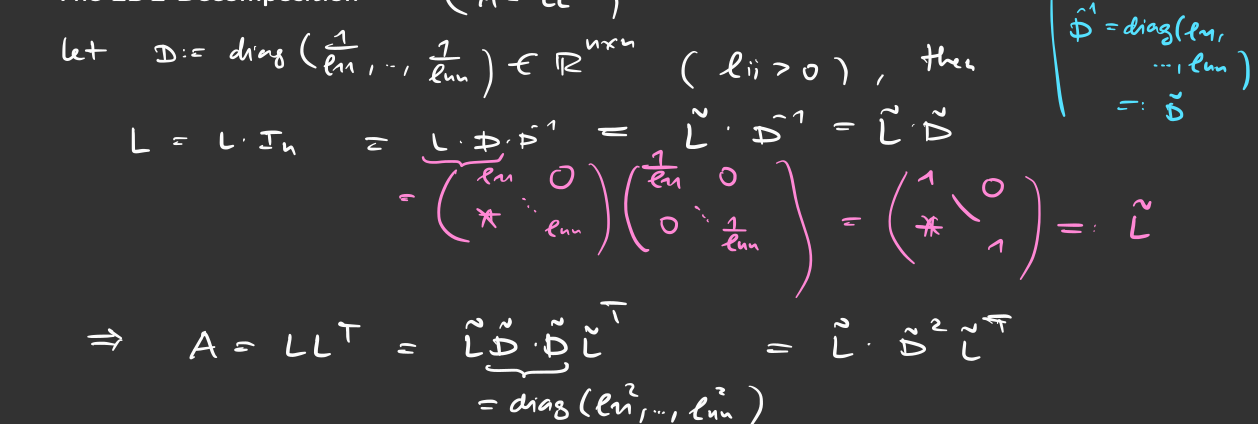 The LDL Decomposition (A = LL^T)
let D := diag(1/l11, ..., 1/lnn) ∈ ℝ^{n×n} (lii > 0), then
D^-1 = diag(l11,
..., lnn)
=: D̃
L = L · In = L · D · D^-1 = L̃ · D^-1 = L̃ · D̃
= (l11 0 * ⋱ lnn) (1/l11 0 0 ⋱ 1/lnn) = (1 0 * \ 1) =: L̃
⇒ A = LL^T = L̃ D̃ · D̃ L̃^T = L̃ · D̃^2 L̃^T
= diag(l11^2, ..., lnn^2)